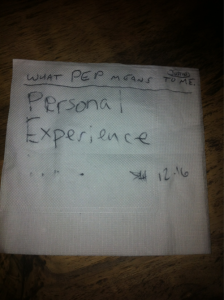 WHAT PEP MEANS TO ME
Personal
Experience
12.16